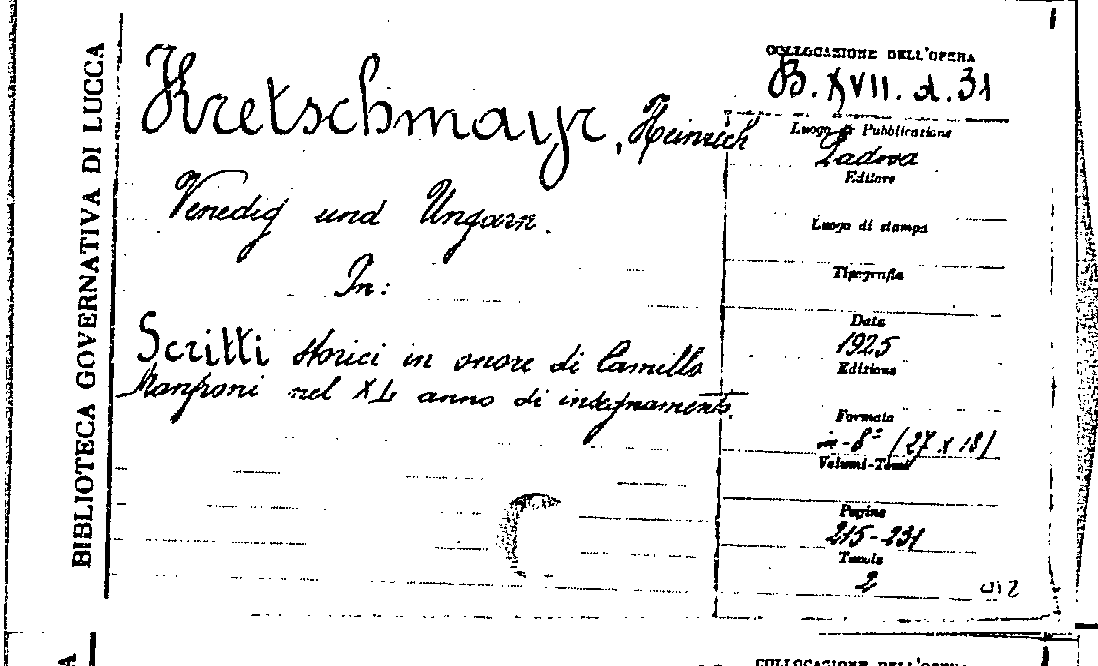 BIBLIOTECA GOVERNATIVA DI LUCCA
Kretschmayr, Heinrich
Venedig und Ungarn.
In:
Scritti storici in onore di Camillo
Manfroni nel XL anno di insegnamento.
COLLOCAZIONE DELL'OPERA
B. XVII. d. 31
Luogo di Pubblicazione
Padova
Editore
Luogo di stampa
Tipografia
Data
1925
Edizione
Formato
in-8º (27 x 18)
Volumi-Tomi
Pagine
215-231
Tavole
2
COLLOCAZIONE DELL'OPERA